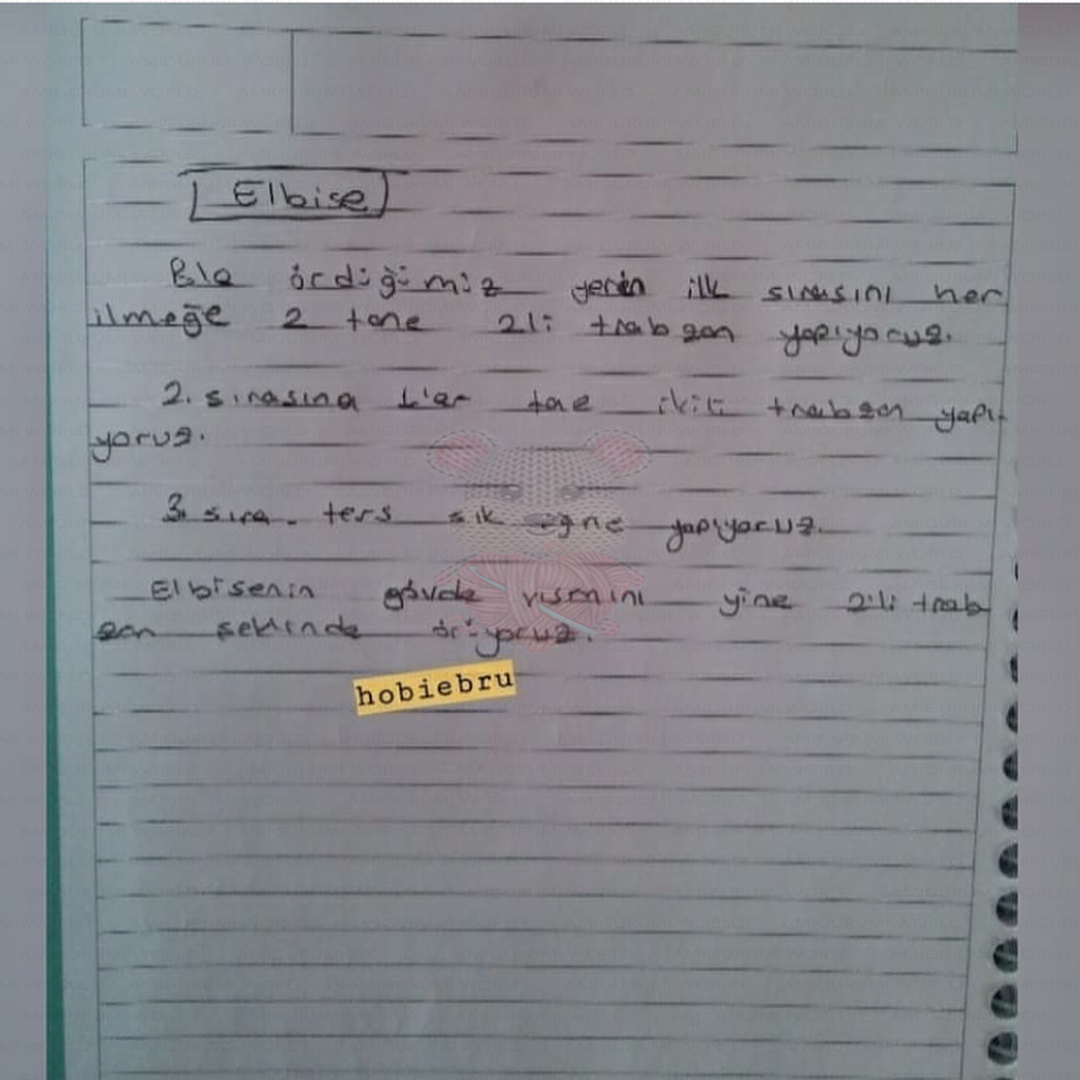 Elbise
Blo ördüğümüz yerin ilk sırasını her
ilmeğe 2 tane 2li trabzan yapıyoruz.
2. sırasına 1'er tane ikili trabzan yapı-
yoruz.
3. sıra. ters sık iğne yapıyoruz.
Elbisenin gövde kısmını yine 2'li trab
zan şeklinde örüyoruz.
hobiebru